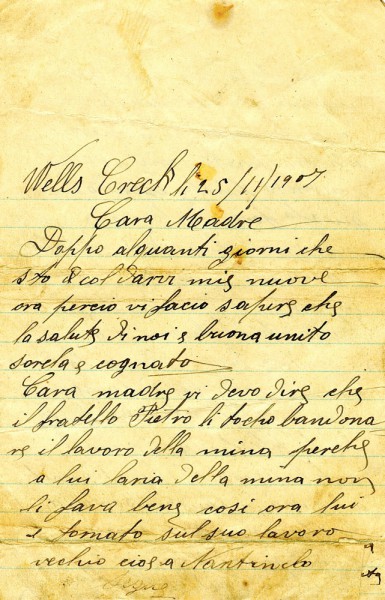 Wells Creck li 25/11/1907
Cara Madre
Doppo alquanti giorni che
sto col darvi mie nuove
ora percio vi facio sapere che
la salute di noi e buona unito
sorela e cognato
Cara madre vi devo dire che
il fratello Pietro li tocho bandona
re il lavoro della mina perche
a lui laria della mina non
li fava bene cosi ora lui
e tornato sul suo lavoro
vecchio cioe a